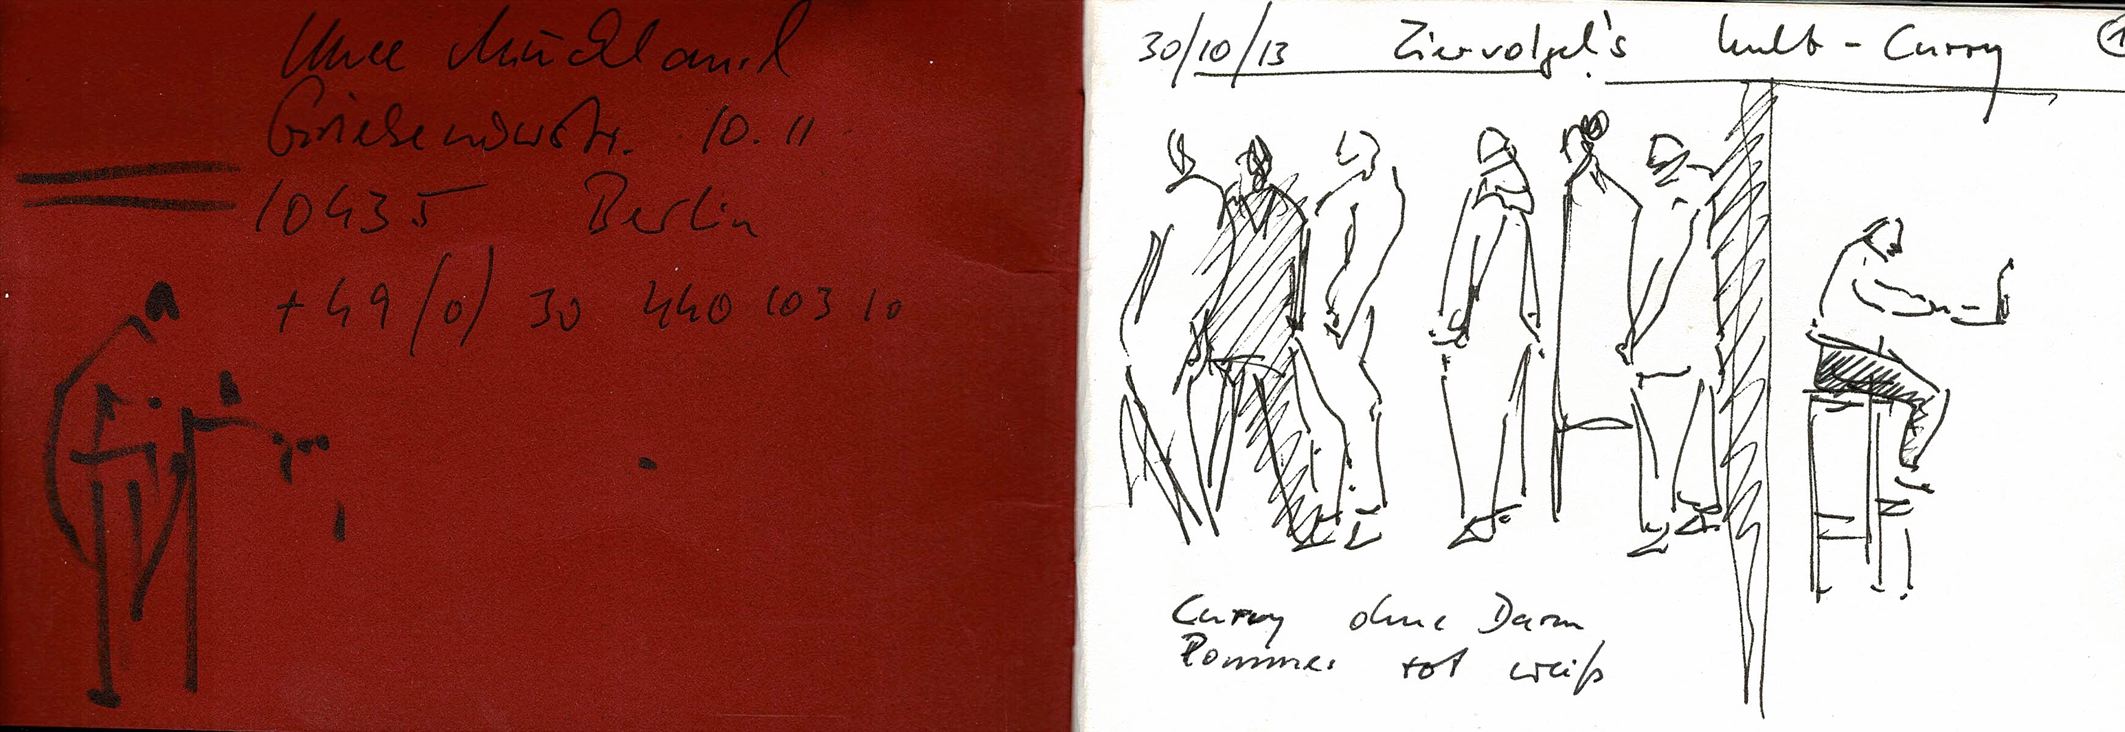 10.11
10435 Berlin
+49 (0) 30 440 103 10
30/10/13 Ziervolgel's Kult-Curry 1
Curry ohne Darm
Pommes rot weiß